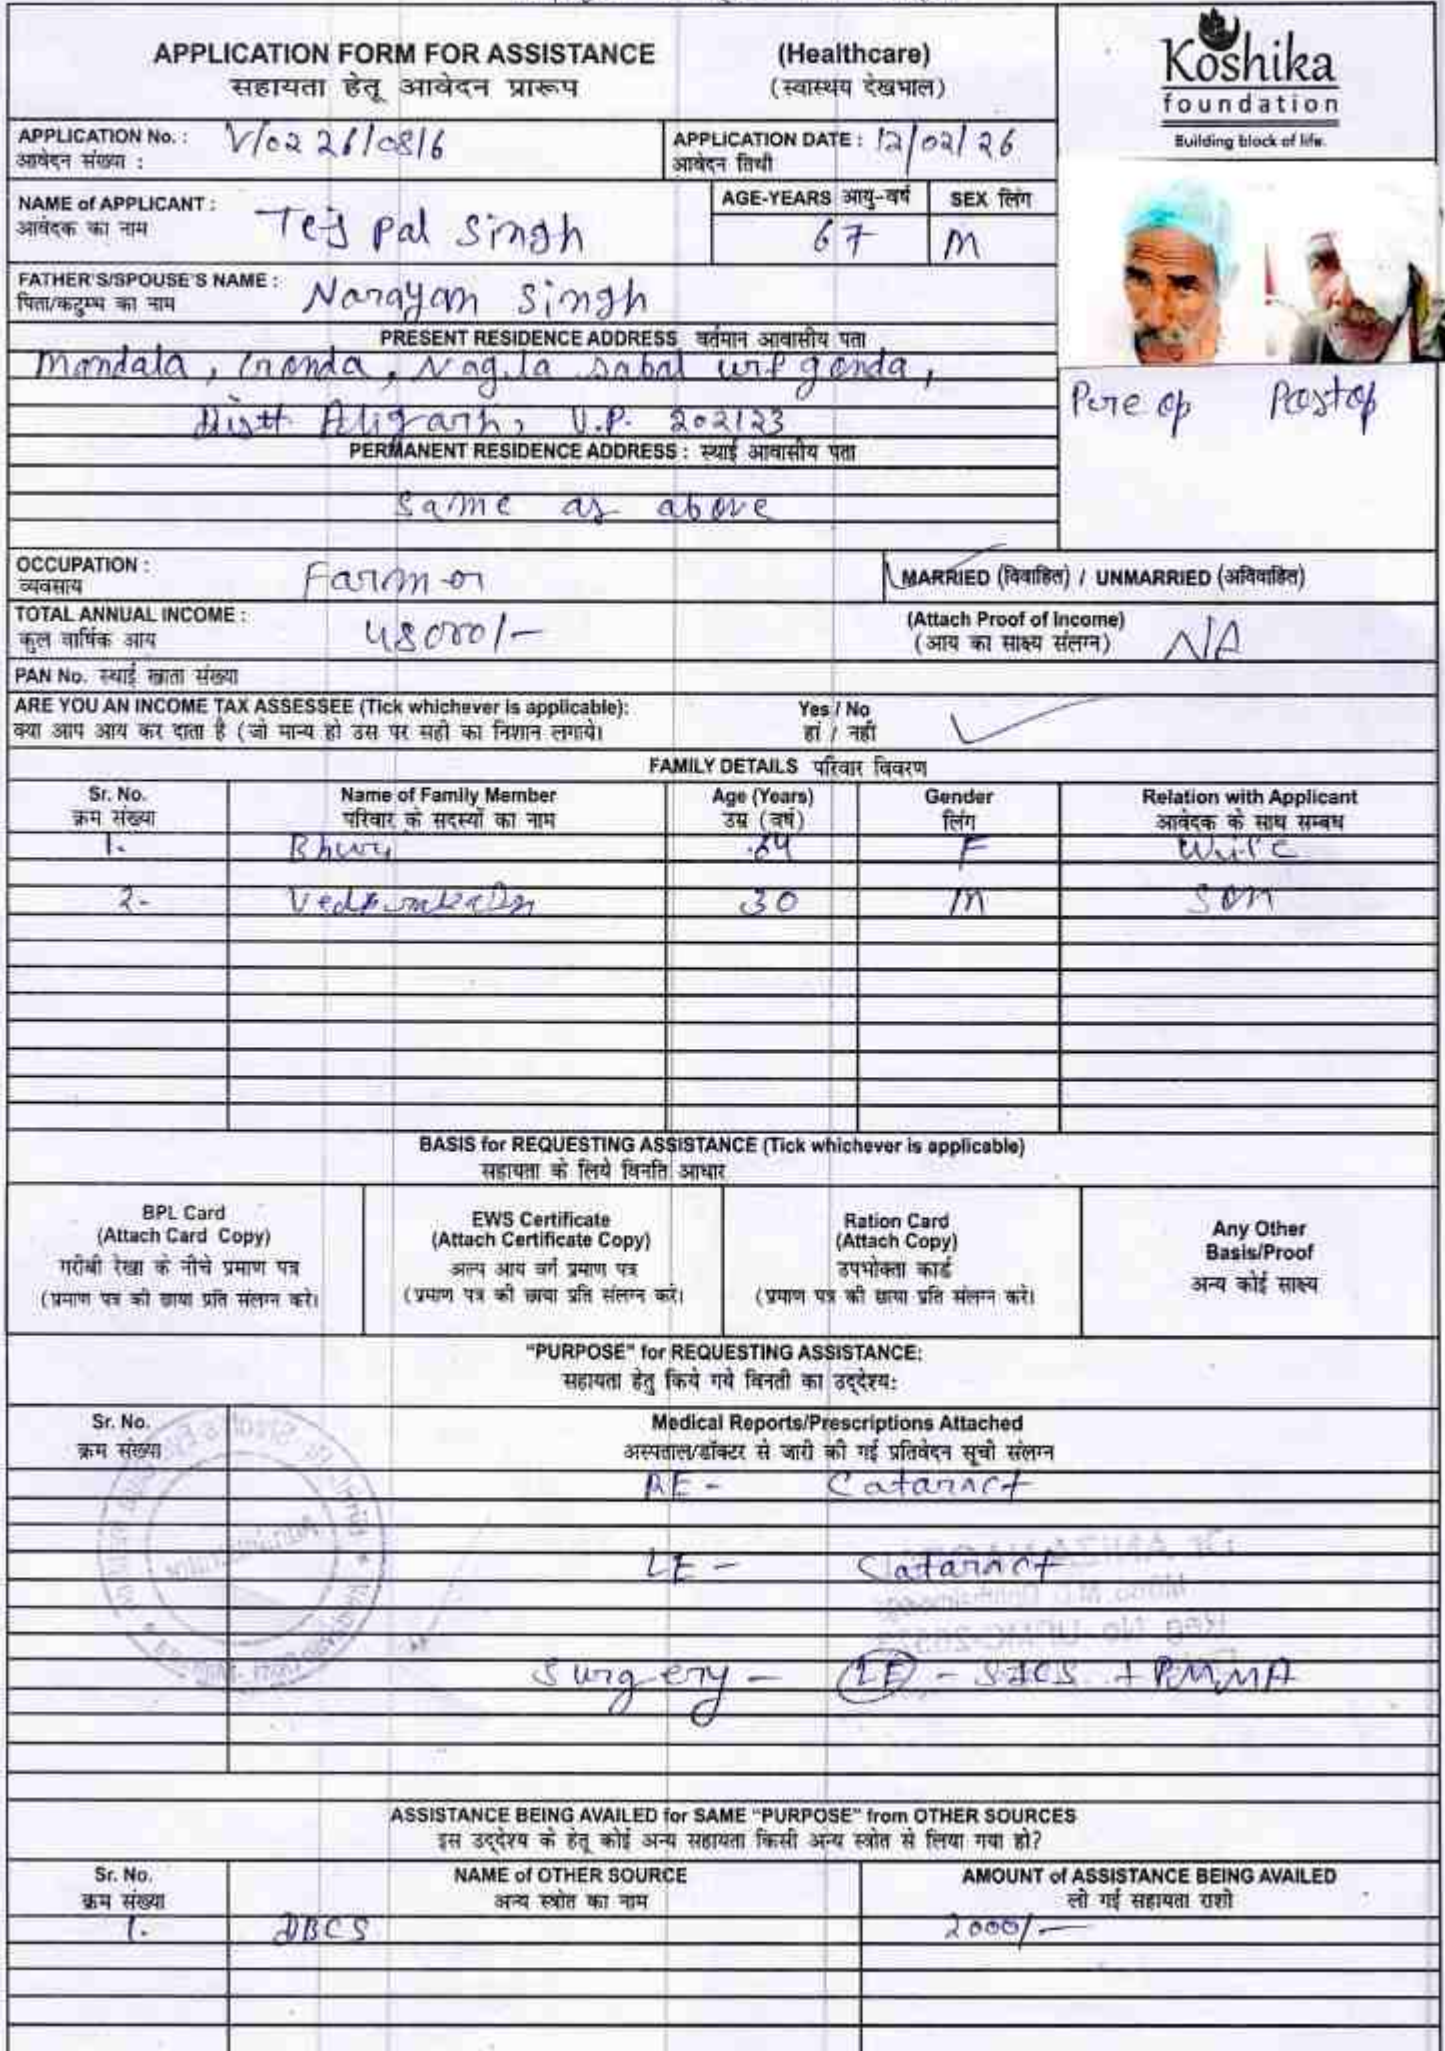 APPLICATION FORM FOR ASSISTANCE (Healthcare)
सहायता हेतू आवेदन प्रारूप (स्वास्थय देखभाल)
Koshika
foundation
Building block of life.
APPLICATION No. : V/02 26/0816
आवेदन संख्या :
APPLICATION DATE : 12/02/26
आवेदन तिथी
NAME of APPLICANT : Tej Pal Singh
आवेदक का नाम
AGE-YEARS आयु-वर्ष 67
SEX लिंग M
FATHER'S/SPOUSE'S NAME : Narayan Singh
पिता/कटुम्ब का नाम
PRESENT RESIDENCE ADDRESS वर्तमान आवासीय पता
Mandala, Gonda, Nagla Sabal urf gonda,
Distt Aligarh, U.P. 202123
Pre op Post op
PERMANENT RESIDENCE ADDRESS : स्थाई आवासीय पता
Same as above
OCCUPATION : Farmer
व्यवसाय
MARRIED (विवाहित) / UNMARRIED (अविवाहित)
TOTAL ANNUAL INCOME : 48000/-
कुल वार्षिक आय
(Attach Proof of Income) N/A
(आय का साक्ष्य संलग्न)
PAN No. स्थाई खाता संख्या
ARE YOU AN INCOME TAX ASSESSEE (Tick whichever is applicable): Yes / No
क्या आप आय कर दाता है (जो मान्य हो उस पर सही का निशान लगाये। हां / नही
FAMILY DETAILS परिवार विवरण
Sr. No. Name of Family Member Age (Years) Gender Relation with Applicant
क्रम संख्या परिवार के सदस्यों का नाम उम्र (वर्ष) लिंग आवेदक के साथ सम्बध
1. F Wife
2- 30 M Son
BASIS for REQUESTING ASSISTANCE (Tick whichever is applicable)
सहायता के लिये विनति आधार
BPL Card
(Attach Card Copy)
गरीबी रेखा के नीचे प्रमाण पत्र
(प्रमाण पत्र की छाया प्रति संलग्न करे।
EWS Certificate
(Attach Certificate Copy)
अल्प आय वर्ग प्रमाण पत्र
(प्रमाण पत्र की छाया प्रति संलग्न करे।
Ration Card
(Attach Copy)
उपभोक्ता कार्ड
(प्रमाण पत्र की छाया प्रति संलग्न करे।
Any Other
Basis/Proof
अन्य कोई साक्ष्य
"PURPOSE" for REQUESTING ASSISTANCE:
सहायता हेतु किये गये विनती का उद्देश्य:
Sr. No. Medical Reports/Prescriptions Attached
क्रम संख्या अस्पताल/डॉक्टर से जारी की गई प्रतिवेदन सूची संलग्न
RE - Cataract
LE - Cataract
Surgery - LE - SICS + PMMA
ASSISTANCE BEING AVAILED for SAME "PURPOSE" from OTHER SOURCES
इस उद्देश्य के हेतू कोई अन्य सहायता किसी अन्य स्त्रोत से लिया गया हो?
Sr. No. NAME of OTHER SOURCE AMOUNT of ASSISTANCE BEING AVAILED
क्रम संख्या अन्य स्त्रोत का नाम ली गई सहायता राशी
1. DBCS 2000/-